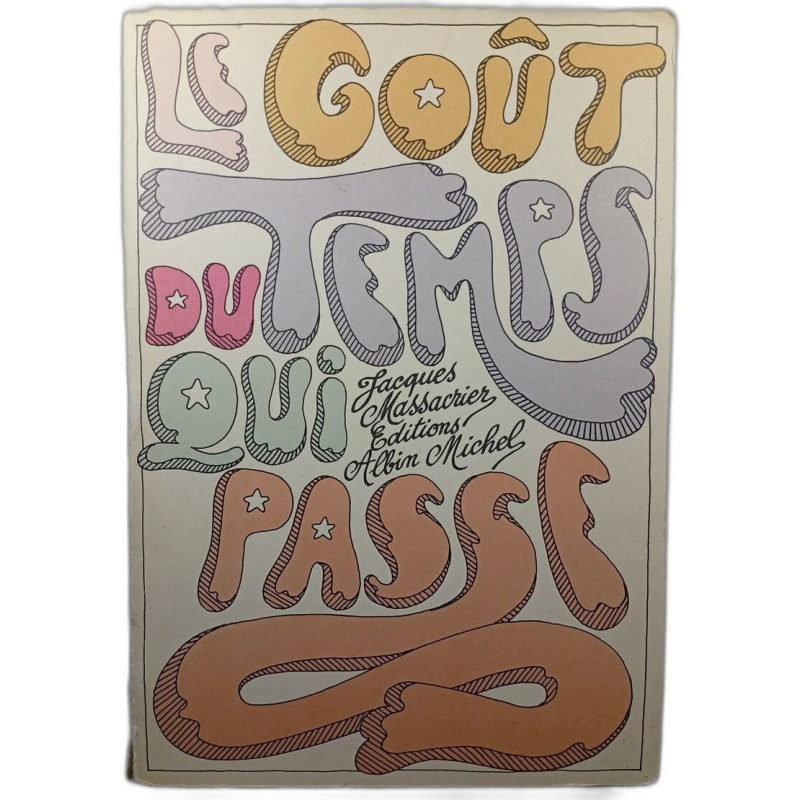 LE GOÛT
DU TEMPS
QUI
Jacques
Massacrier
Editions
Albin Michel
PASSE